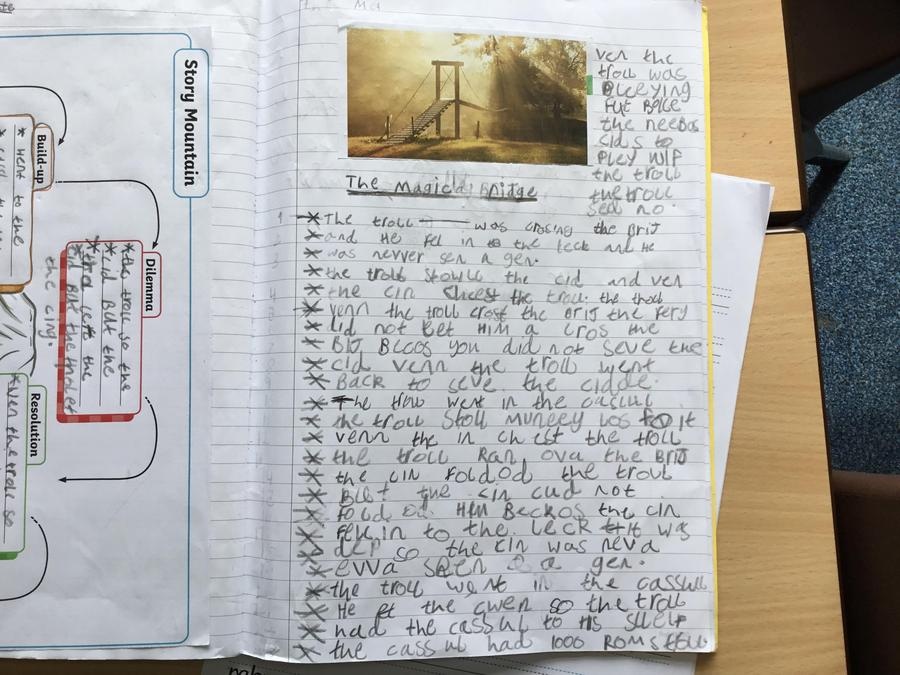 Story Mountain
Build-up
* went to the
Dilemma
* the troll so the
the cing.
Resolution
* ven the troll so
The Magical Bridge
* The troll was crosing the Brij
* and He fel in to the leck and He
* was nevver sen a gen.
* the troll stowle the cid and ven
* the cin cheest the troll. the troll
* venn the troll crost the Brij the fery
* did not let Him a cros the
* Brij Becos you did not seve the
* cid venn the troll went
* Back to seve the cidde.
* The troll went in the casull
* the troll stoll munney
* venn the cin chest the troll
* the troll Ran ova the Brij
* the cin Folod the troll
* But the cin cud not
* Folod Him Beckos the cin
* Fell in to the leck it was
* dep so the cin was neva
* evva seen a gen.
* the troll went in the cassull
* He et the qwen so the troll
* had the cassul to His sllelf
* the cassul had 1000 Roms
ven the
troll was
pleeying
Fut Bolle
the
cids to
pley wif
the troll
the troll
sed no.